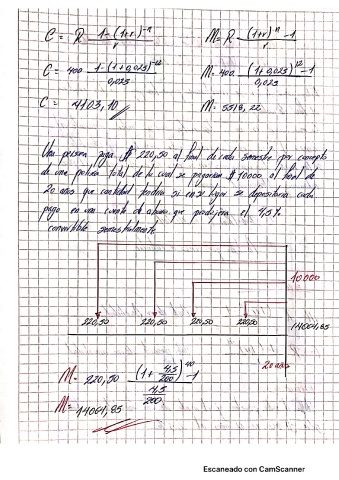 C = R 1-(1+r)^-n / r     M = R (1+r)^n -1 / r
C = 400 1-(1+0,023)^-12 / 0,023     M = 400 (1+0,023)^12 -1 / 0,023
C = 4103,10     M = 5518,22
Una persona paga $ 220,50 al final de cada semestre por concepto
de una poliza total de la cual se pagaran $ 10000 al final de
20 años que cantidad tendria si en se lugar se depositaria cada
pago en una cuenta de ahorro que produjera el 4,5%
convertible semestralmente
10000
220,50 220,50 220,50 220,50 14001,85
20 años
M = 220,50 (1+ 4,5/200)^40 -1 / 4,5/200
M = 14001,85
Escaneado con CamScanner